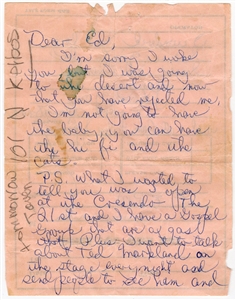 Dear Ed,
I'm sorry I woke
you but I was going
to the desert and now
that you have rejected me,
I'm not going to have
the baby, you can have
the hi fi and the
cats.
P.S. what I wanted to
tell you was I open
at the Crescendo the
21st and I have a Gospel
Group that are a gas
Plus I want to talk
about Ted Markland on
the stage everynight and
send people to see him and
Tomorrow 101 N